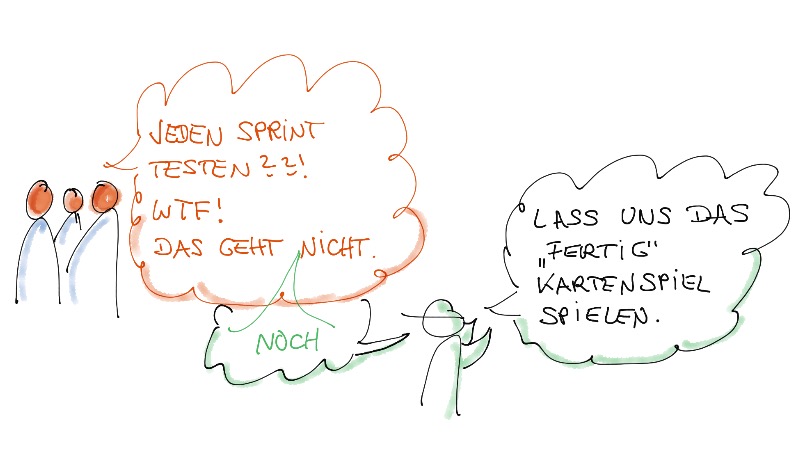 JEDEN SPRINT
TESTEN??!
WTF!
DAS GEHT NICHT.
NOCH
LASS UNS DAS
„FERTIG“
KARTENSPIEL
SPIELEN.